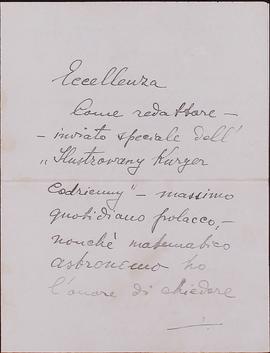 Eccellenza
Come redattore –
– inviato speciale dell'
„Ilustrowany Kuryer
Codzienny” – massimo
quotidiano polacco, –
nonchè matematico
astronomo ho
l'onore di chiedere